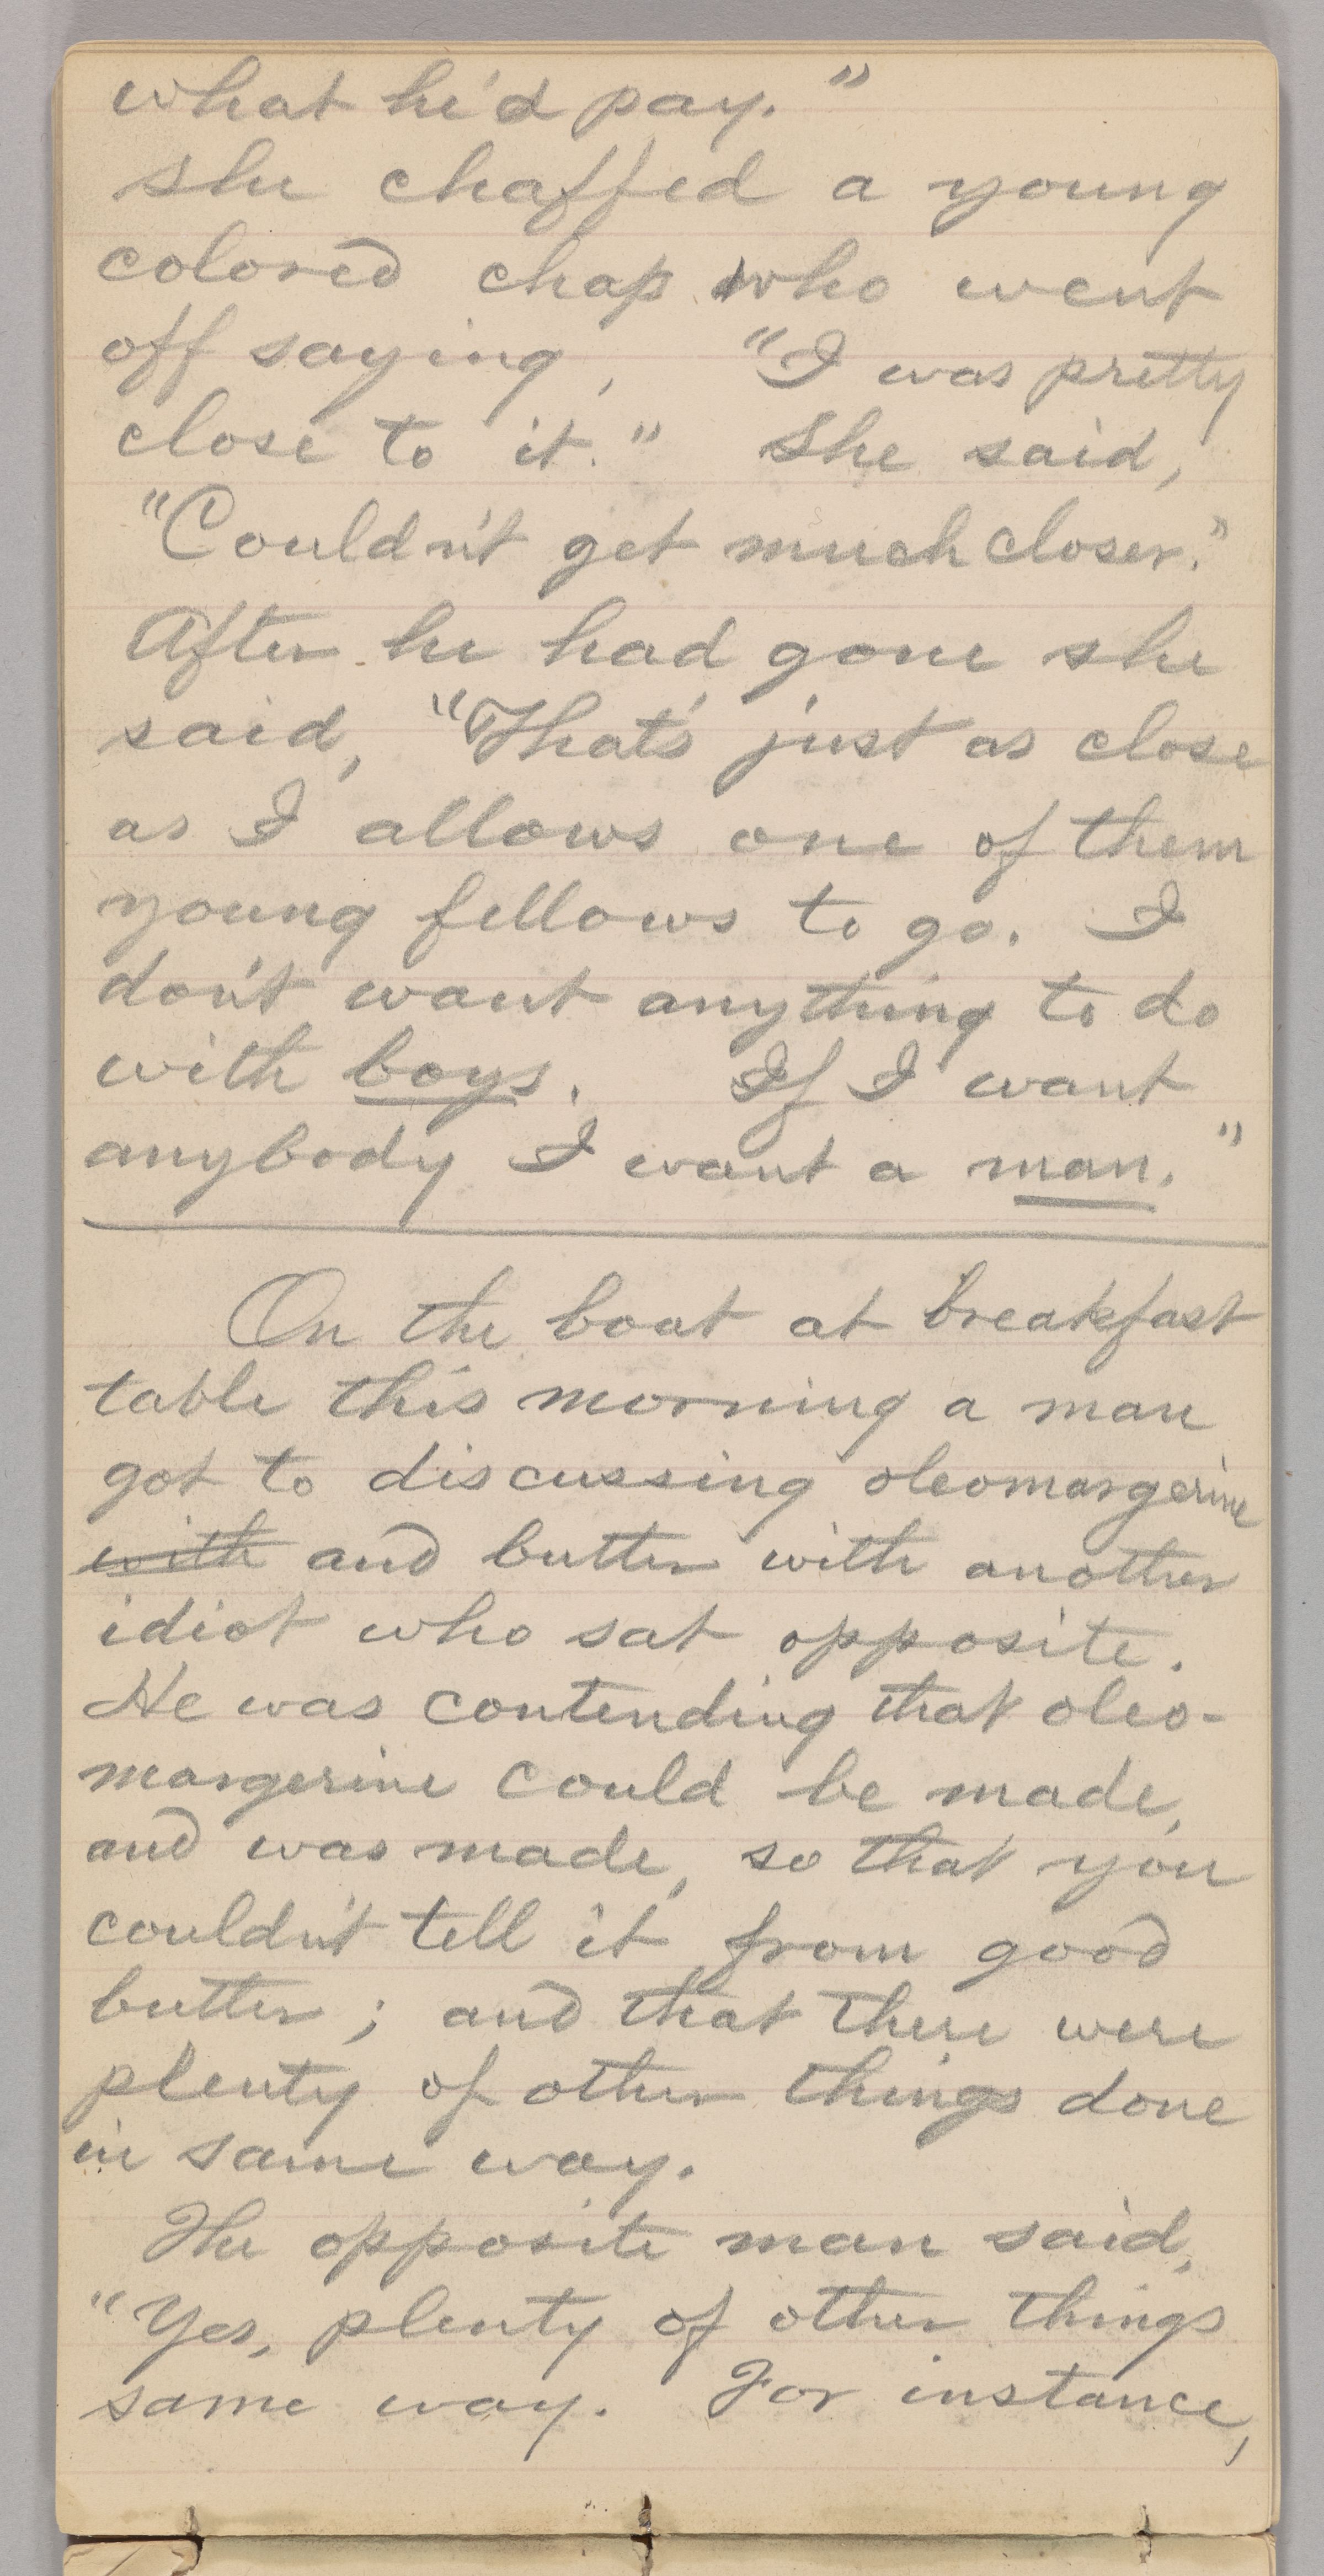 what he'd pay."
She chaffed a young
colored chap who went
off saying, "I was pretty
close to it." She said,
"Couldn't get much closer."
After he had gone she
said, "That's just as close
as I allows one of them
young fellows to go. I
don't want anything to do
with boys. If I want
anybody I want a man."
On the boat at breakfast
table this morning a man
got to discussing oleomargerine
with and butter with another
idiot who sat opposite.
He was contending that oleo-
margerine could be made,
and was made, so that you
couldn't tell it from good
butter; and that there were
plenty of other things done
in same way.
The opposite man said,
"Yes, plenty of other things
same way. For instance,